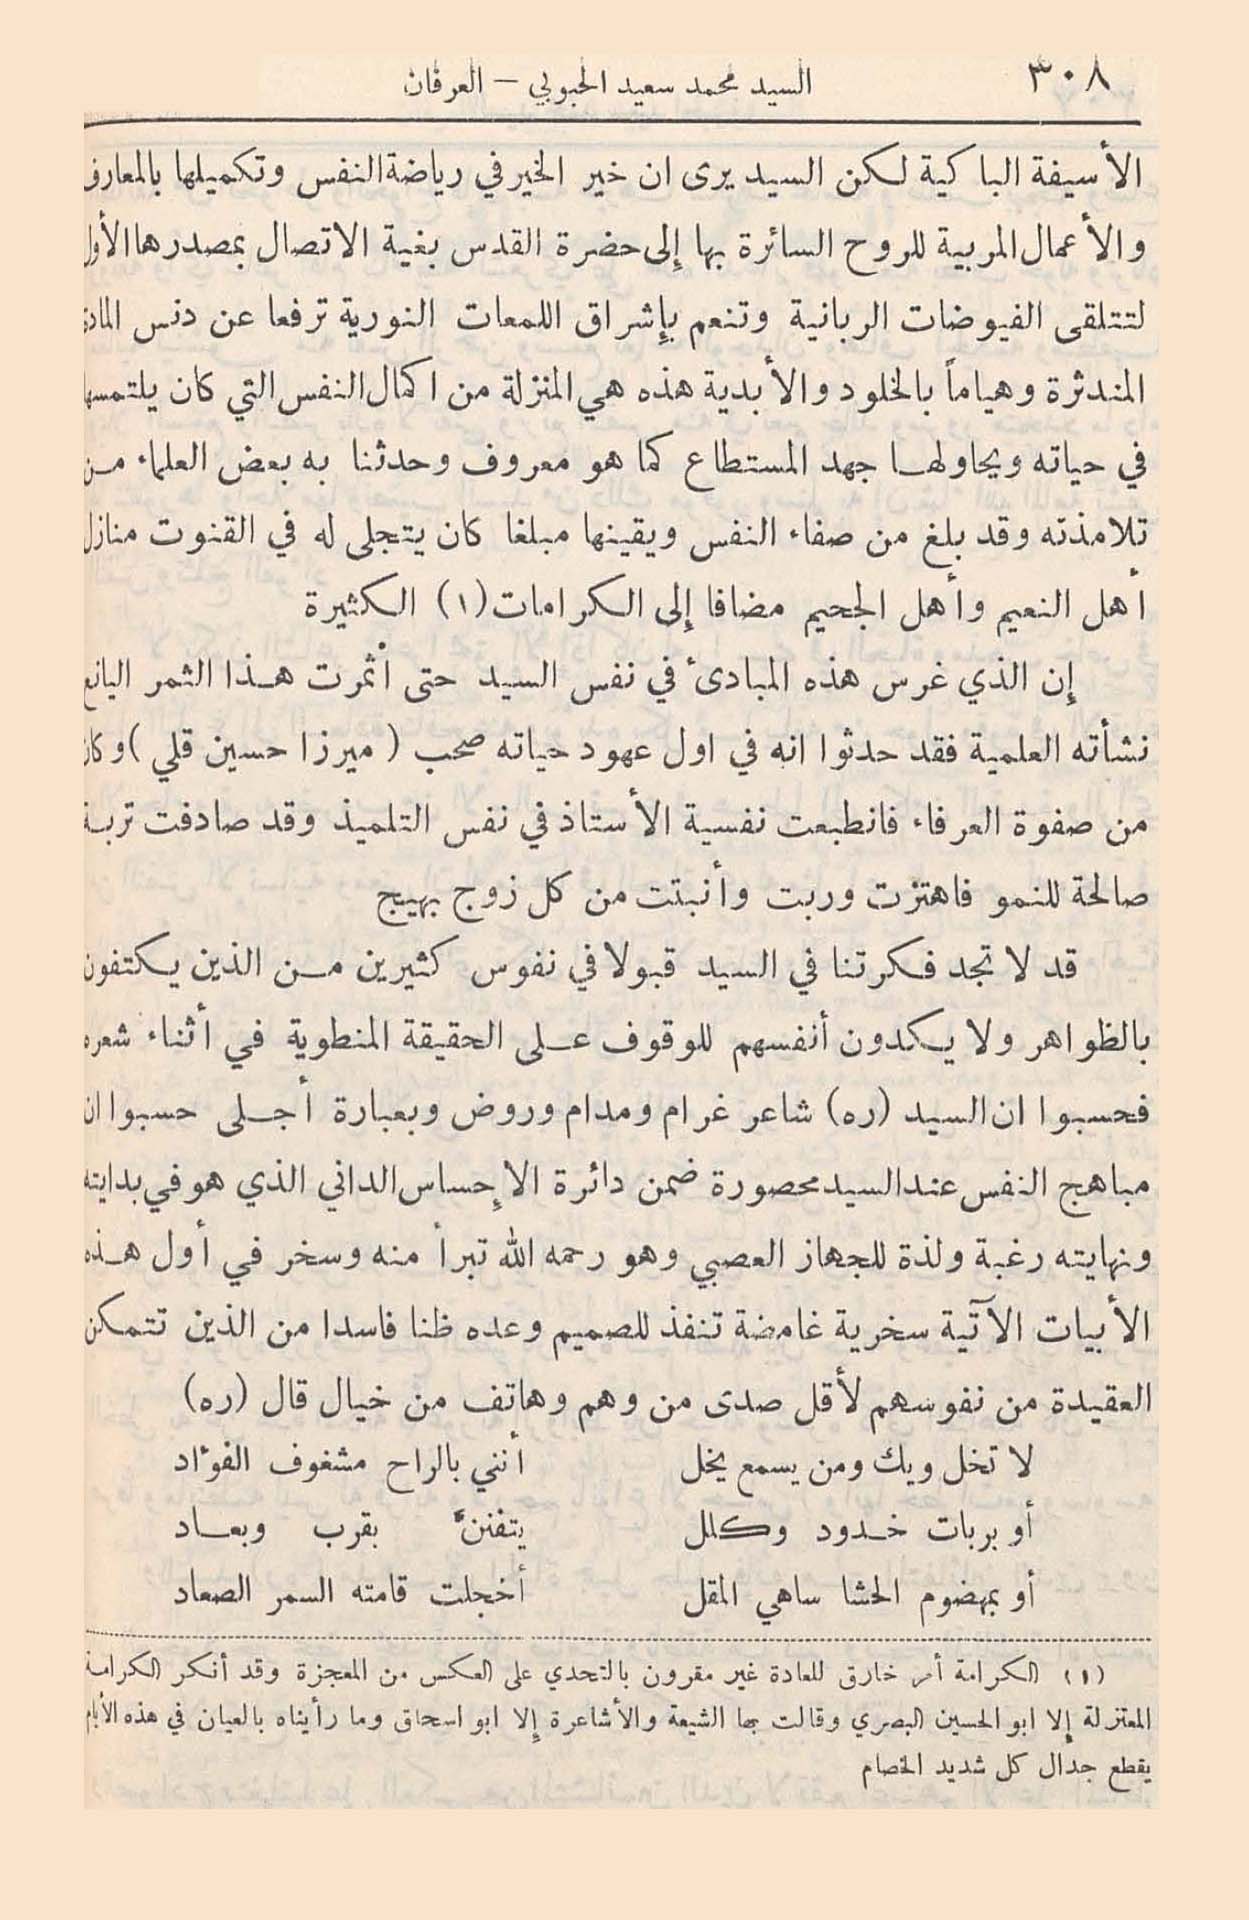 ٣٠٨
السيد محمد سعيد الحبوبي — العرفان
الأسيفة الباكية لكن السيد يرى ان خير الخير في رياضة النفس وتكميلها بالمعارف
والأعمال المربية للروح السائرة بها إلى حضرة القدس بغية الاتصال بمصدرها الأول
لتتلقى الفيوضات الربانية وتنعم بإشراق اللمعات النورية ترفعا عن دنس
المندثرة وهياماً بالخلود والأبدية هذه هي المنزلة من اكمال النفس التي كان يلتمسها
في حياته ويحاولها جهد المستطاع كما هو معروف وحدثنا به بعض العلماء من
تلامذته وقد بلغ من صفاء النفس ويقينها مبلغا كان يتجلى له في القنوت منازل
أهل النعيم وأهل الجحيم مضافا إلى الكرامات (١) الكثيرة
إن الذي غرس هذه المبادئ في نفس السيد حتى أثمرت هذا الثمر اليانع
نشأته العلمية فقد حدثوا انه في اول عهود حياته صحب ( ميرزا حسين قلي ) وكان
من صفوة العرفاء فانطبعت نفسية الأستاذ في نفس التلميذ وقد صادفت تربة
صالحة للنمو فاهتزت وربت وأنبتت من كل زوج بهيج
قد لا تجد فكرتنا في السيد قبولا في نفوس كثيرين من الذين يكتفون
بالظواهر ولا يكدون أنفسهم للوقوف على الحقيقة المنطوية في أثناء شعره
فحسبوا ان السيد (ره) شاعر غرام ومدام وروض وبعبارة أجلى حسبوا ان
مباهج النفس عند السيد محصورة ضمن دائرة الإحساس الداني الذي هو في بدايته
ونهايته رغبة ولذة للجهاز العصبي وهو رحمه الله تبرأ منه وسخر في أول هذه
الأبيات الآتية سخرية غامضة تنفذ للصميم وعده ظنا فاسدا من الذين تتمكن
العقيدة من نفوسهم لأقل صدى من وهم وهاتف من خيال قال (ره)
لا تخل ويك ومن يسمع يخل أنني بالراح مشغوف الفؤاد
أو بربات خدود وكلل يتفننَّ بقرب وبعاد
أو بمهضوم الحشا ساهي المقل أخجلت قامته السمر الصعاد
(١) الكرامة أمر خارق للعادة غير مقرون بالتحدي على العكس من المعجزة وقد أنكر الكرامة
المعتزلة إلا ابو الحسين البصري وقالت بها الشيعة والأشاعرة إلا ابو اسحاق وما رأيناه بالعيان في هذه الأيام
يقطع جدال كل شديد الخصام